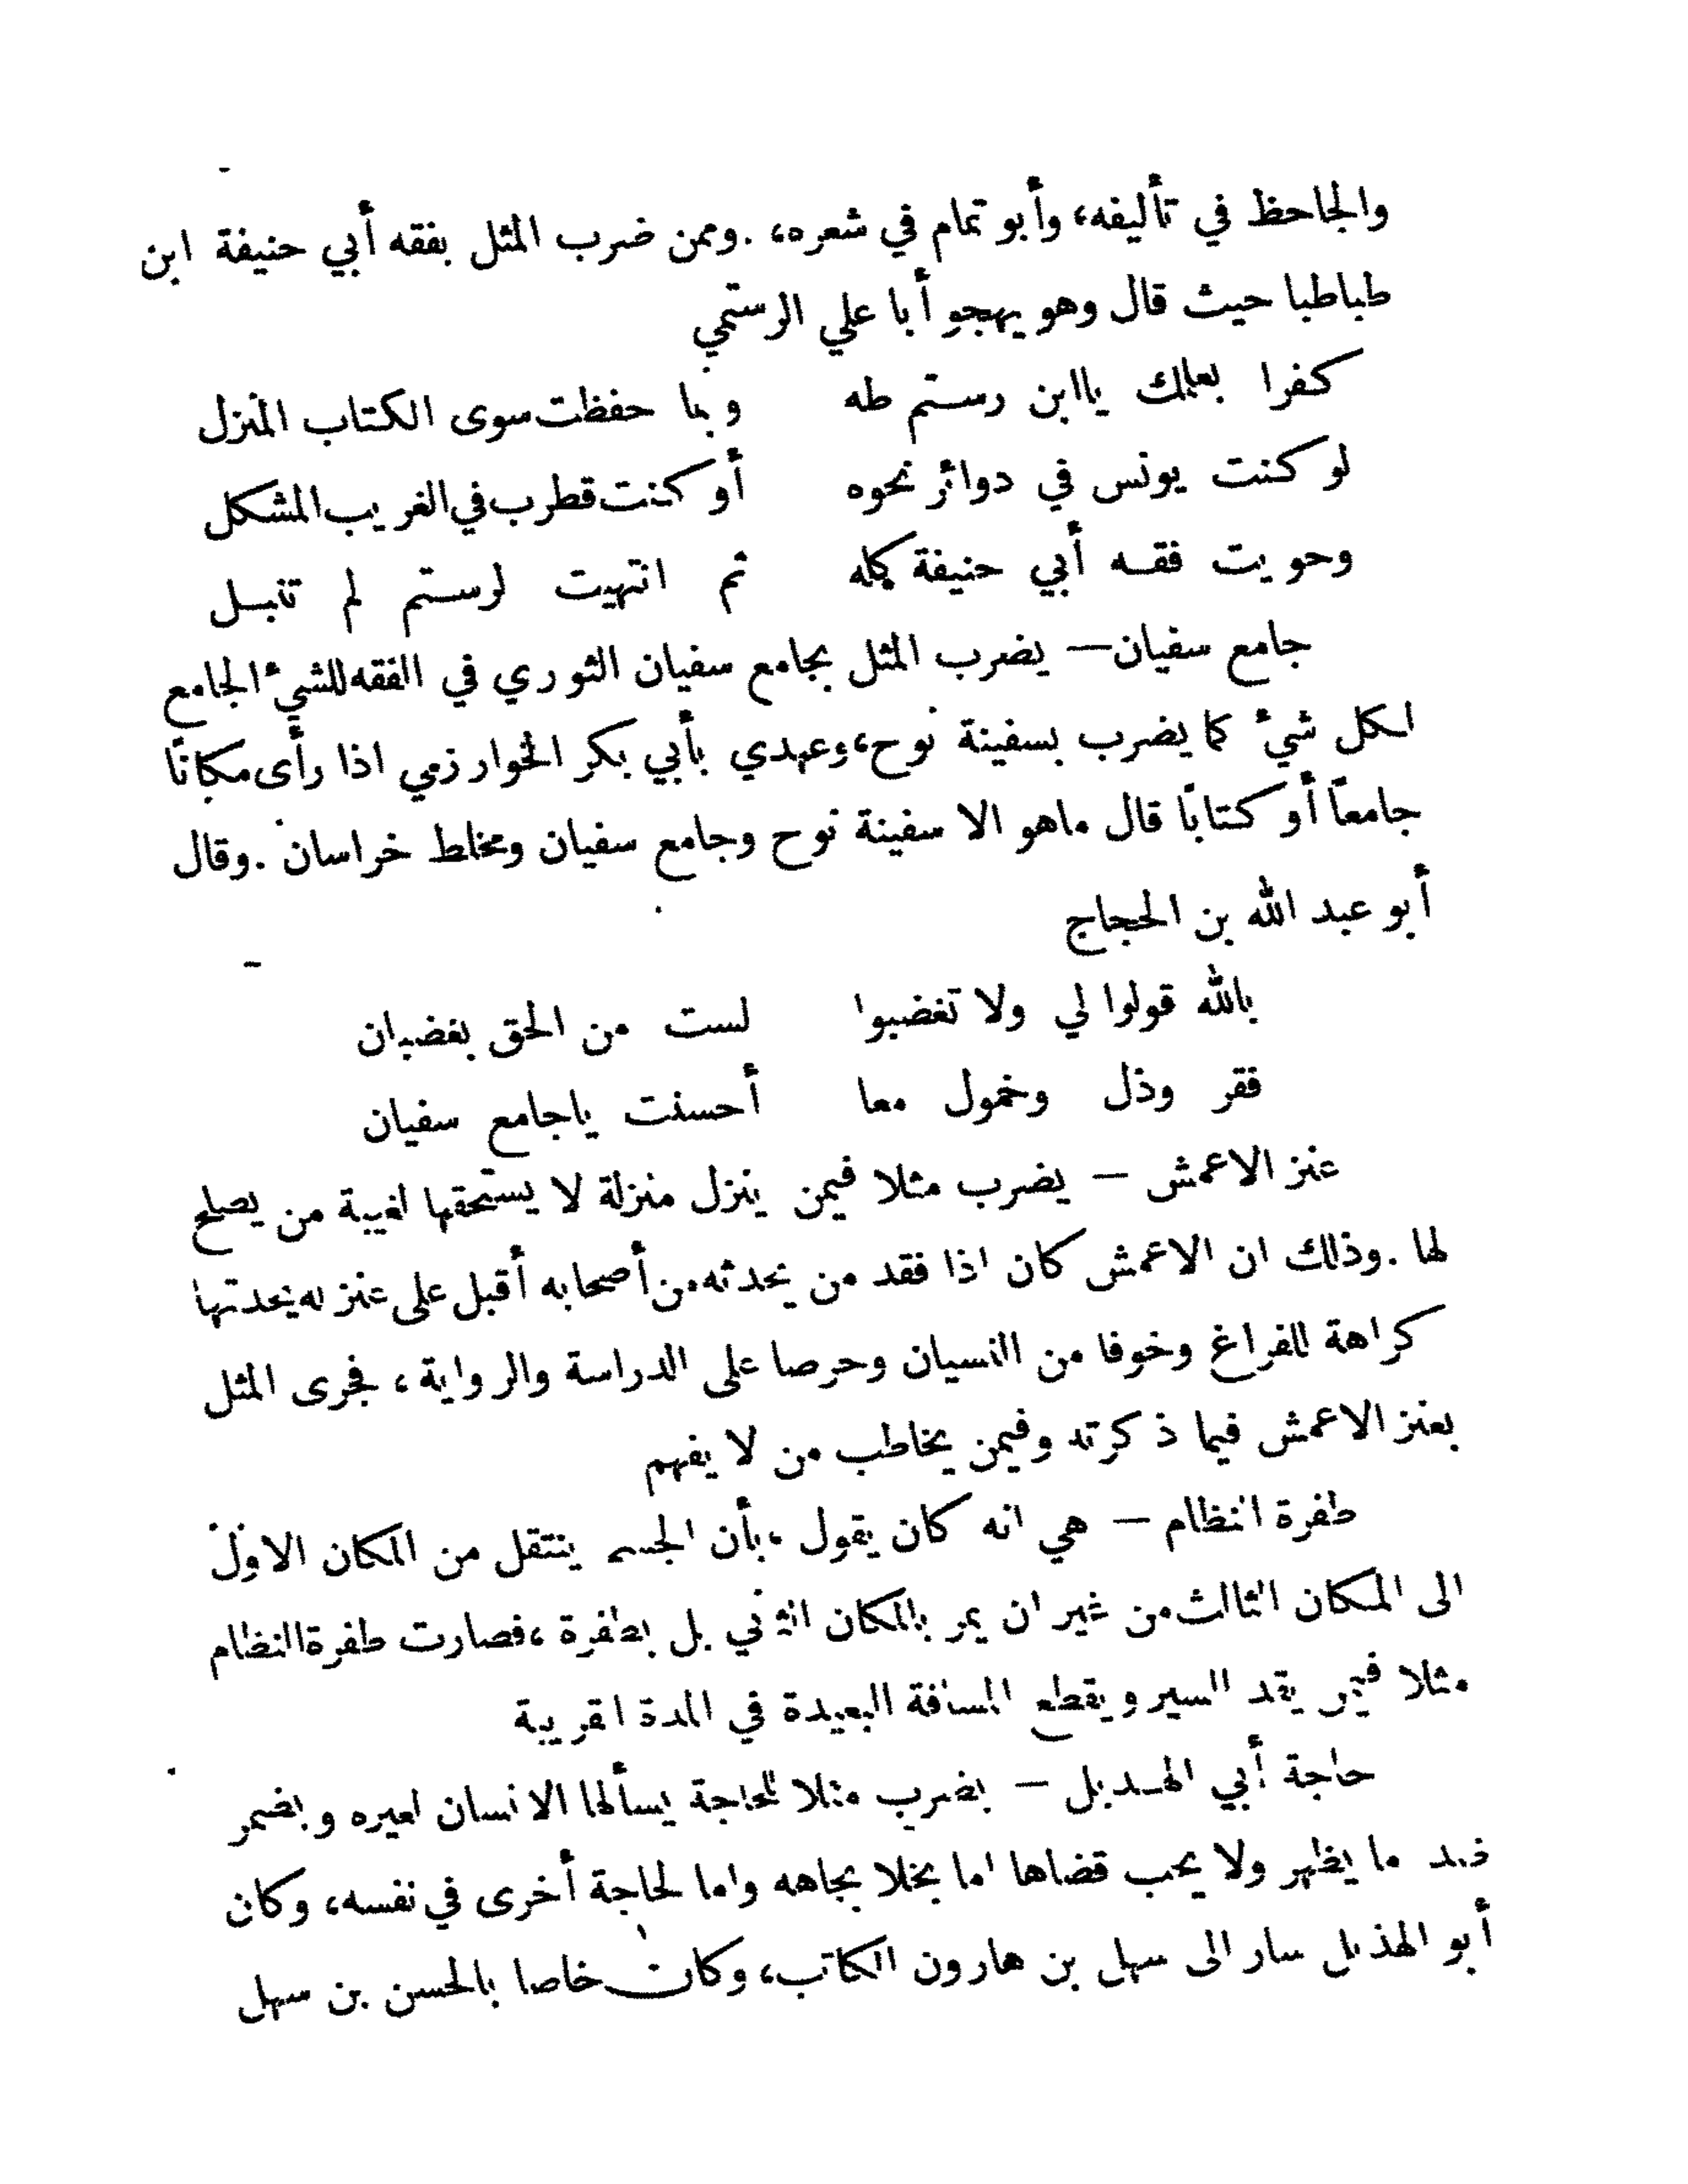 والجاحظ في تأليفه، وأبو تمام في شعره، .وممن ضرب المثل بفقه أبي حنيفة ابن
طباطبا حيث قال وهو يهجو أبا علي الرستمي
كفرا بعلمك ياابن رستم طه وبما حفظت سوى الكتاب المنزل
لو كنت يونس في دوائر نحوه أو كنت قطرب في الغريب المشكل
وحويت فقه أبي حنيفة كله ثم انتهيت لرستم لم تنبل
جامع سفيان — يضرب المثل بجامع سفيان الثوري في الفقه للشيء الجامع
لكل شيء كما يضرب بسفينة نوح، وعهدي بأبي بكر الخوارزمي اذا رأى مكانًا
جامعًا أو كتابًا قال ماهو الا سفينة نوح وجامع سفيان ومخلط خراسان .وقال
أبو عبد الله بن الحجاج
بالله قولوا لي ولا تغضبوا لست من الحق بغضبان
فقر وذل وخمول معا أحسنت ياجامع سفيان
عنز الاعمش — يضرب مثلا فيمن ينزل منزلة لا يستحقها لغيبة من يصلح
لها .وذلك ان الاعمش كان اذا فقد من يحدثه من أصحابه أقبل على عنز له يحدثها
كراهة للفراغ وخوفا من النسيان وحرصا على الدراسة والرواية، فجرى المثل
بعنز الاعمش فيما ذكرته وفيمن يخاطب من لا يفهم
طفرة النظام — هي انه كان يقول ،بأن الجسم ينتقل من المكان الاول
الى المكان الثالث من غير ان يمر بالمكان الثاني بل بطفرة ،فصارت طفرة النظام
مثلا فيمن يقد السير ويقطع المسافة البعيدة في المدة القريبة
حاجة أبي الهذيل — يضرب مثلا للحاجة يسألها الانسان لغيره ويضمر
ضد ما يظهر ولا يحب قضاها اما بخلا بجاهه واما لحاجة أخرى في نفسه، وكان
أبو الهذيل سار الى سهل بن هارون الكاتب، وكان خاصا بالحسن بن سهل